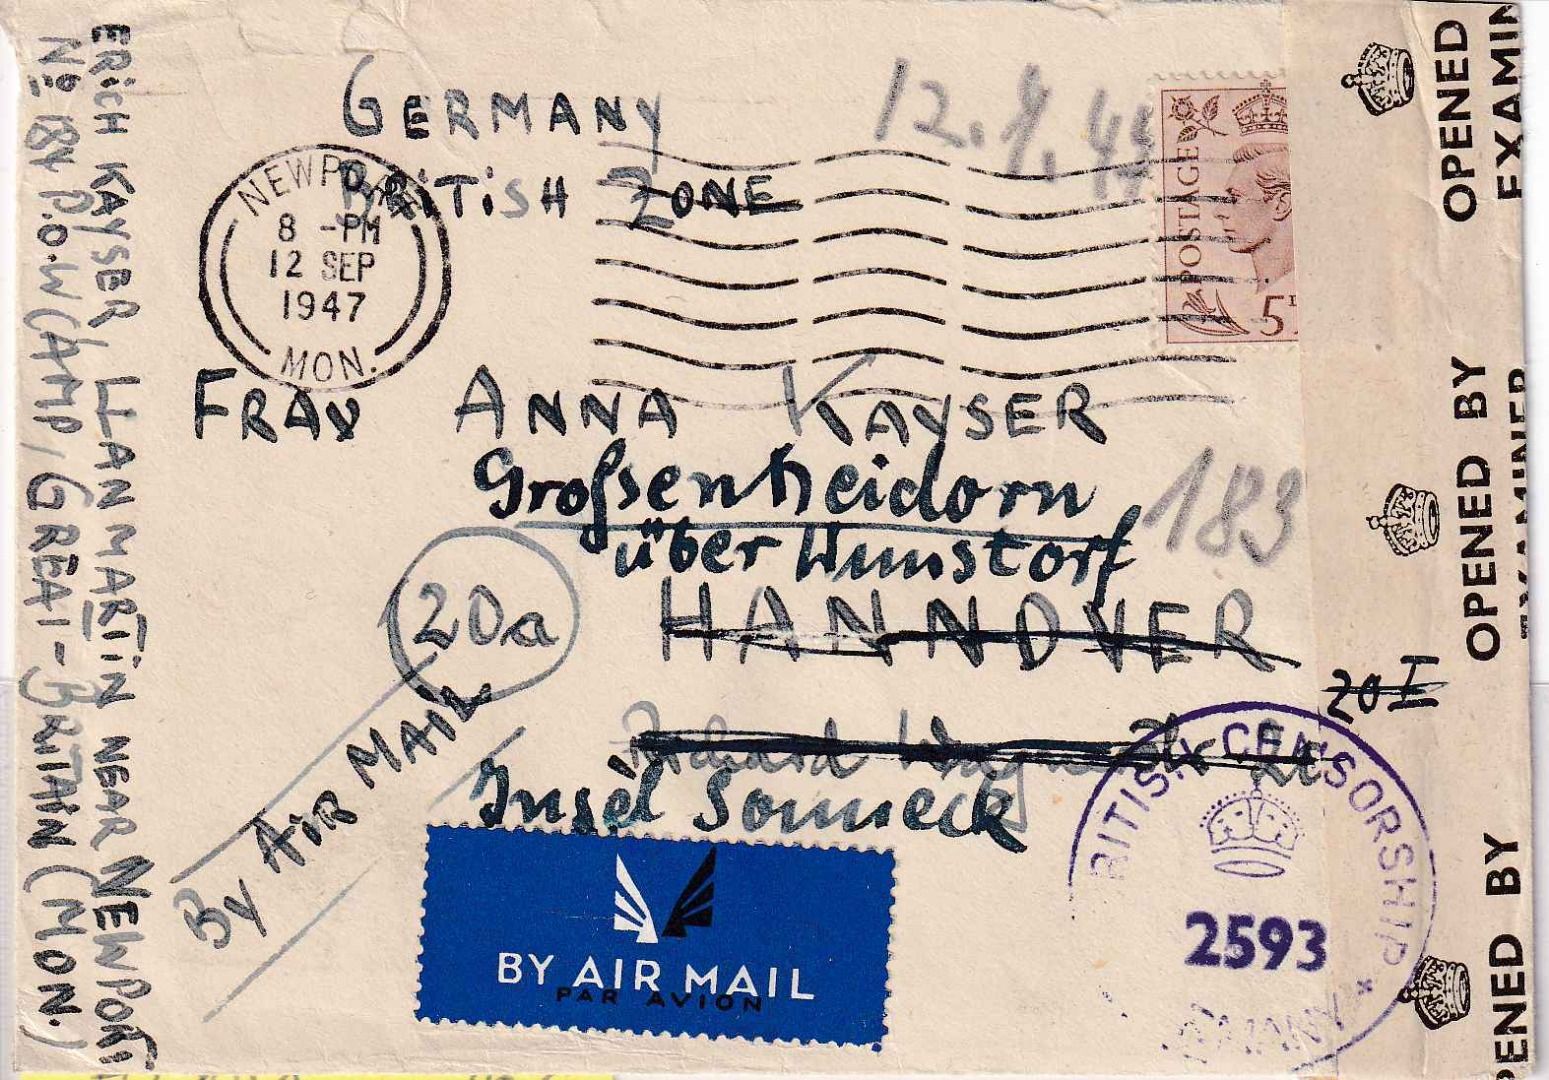 GERMANY
BRITISH ZONE
NEWPORT
8 -PM
12 SEP
1947
MON.
POSTAGE
5D
FRAU ANNA KAYSER
Großenheidorn
über Wunstorf
183
HANNOVER
20a
Insel Sonneck
By AIR MAIL
BY AIR MAIL
PAR AVION
BRITISH CENSORSHIP
2593
GERMANY
OPENED BY
EXAMINER
OPENED BY
EXAMINER
OPENED BY
ERICH KAYSER LLANMARTIN NEAR NEWPORT
No 184 P.O.W CAMP, GREAT-BRITAIN (MON.)